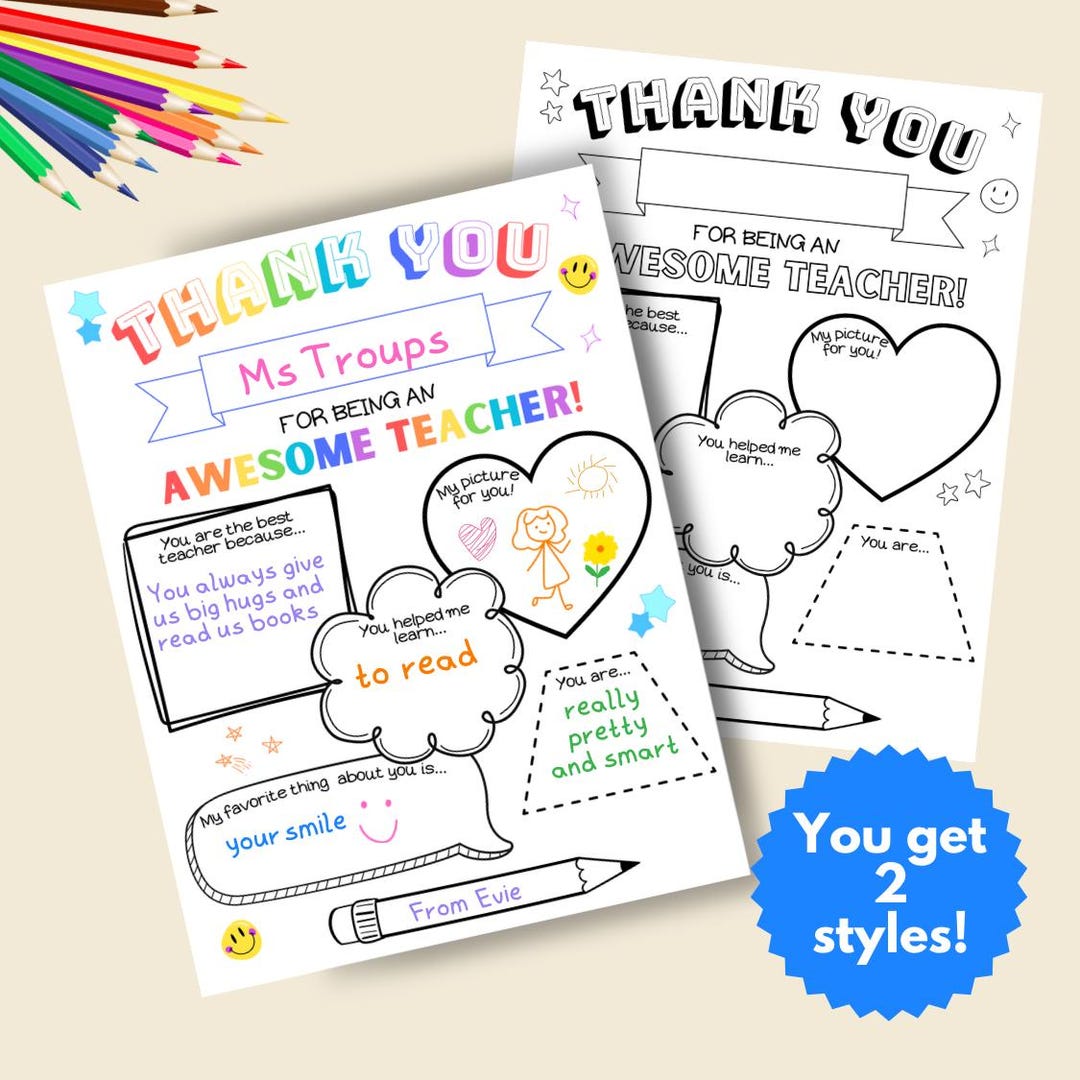 THANK YOU
Ms Troups
FOR BEING AN
AWESOME TEACHER!
You are the best
teacher because...
You always give
us big hugs and
read us books
My picture
for you!
You helped me
learn...
to read
You are...
really
pretty
and smart
My favorite thing about you is...
your smile
From Evie
THANK YOU
FOR BEING AN
WESOME TEACHER!
he best
cause...
My picture
for you!
You helped me
learn...
You are...
you is...
You get
2
styles!